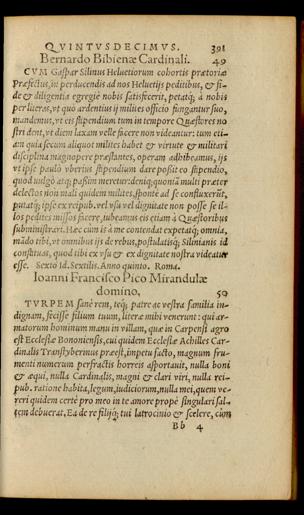 QVINTVSDECIMVS. 391
Bernardo Bibienæ Cardinali. 49
CVM Gaspar Silinus Heluetiorum cohortis prætoriæ
Præfectus, in perducendis ad nos Heluetijs peditibus, & fi-
de & diligentia egregiè nobis satisfecerit, petatq; à nobis
per literas, vt quò ardentius ij milites officio fungantur suo,
mandemus, vt eis stipendium tum in tempore Quæstores no
stri dent, vt diem laxam velle facere non videantur: tum eti-
am quia secum aliquot milites habet & virtute & militari
disciplina magnopere præstantes, operam adhibeamus, ijs
vt ipse paulò vberius stipendium dare possit eo stipendio,
quod vulgò atq; passim meretur: deniq; quoniã multi præter
delectos non mali quidem milites, sponte ad se confluxerint,
putatq; ipse ex reipub. vel vsu vel dignitate non posse se il-
los pedites missos facere, iubeamus eis etiam à Quæstoribus
subministrari. Hæc cum is à me contendat expetatq; omnia,
mãdo tibi, vt omnibus ijs de rebus, postulatisq; Silinianis id
constituas, quod tibi ex vsu & ex dignitate nostra videatur
esse. Sexto Id. Sextilis. Anno quinto. Roma.
Ioanni Francisco Pico Mirandulæ
domino. 50
TVRPEM sanè rem, teq; patre ac vestra familia in-
dignam, fecisse filium tuum, literæ mihi venerunt: qui ar-
matorum hominum manu in villam, quæ in Carpensi agro
est Ecclesiæ Bononiensis, cui quidem Ecclesiæ Achilles Car-
dinalis Transtyberinus præest, impetu facto, magnum fru-
menti numerum perfractis horreis asportauit, nulla boni
& æqui, nulla Cardinalis, magni & clari viri, nulla rei-
pub. ratione habita, legum, iudiciorum, nulla mei, quem ve-
reri quidem certè pro meo in te amore propè singulari sal-
tem debuerat. Ea de re filijq; tui latrocinio & scelere, cùm
Bb 4